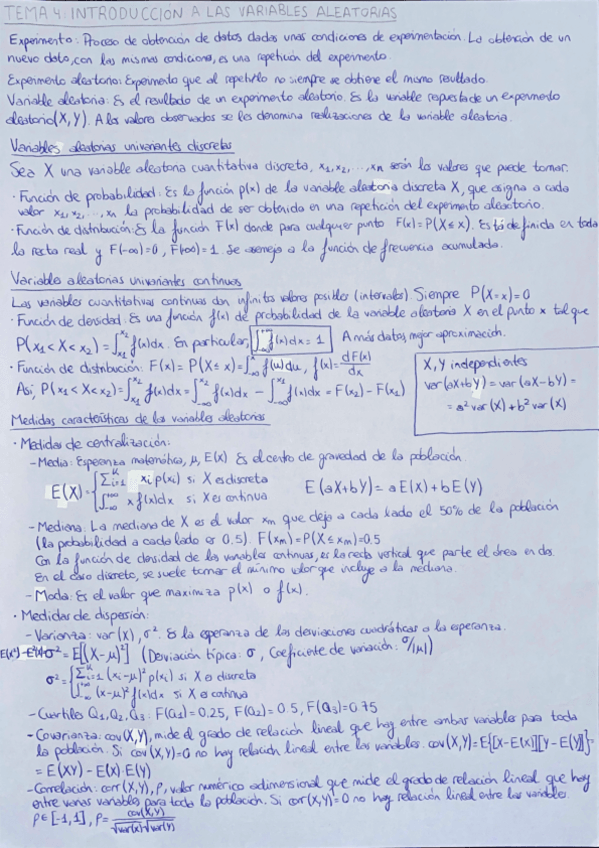 TEMA 4: INTRODUCCIÓN A LAS VARIABLES ALEATORIAS
Experimento: Proceso de obtención de datos dadas unas condiciones de experimentación. La obtención de un
nuevo dato, con las mismas condiciones, es una repetición del experimento.
Experimento aleatorio: Experimento que al repetirlo no siempre se obtiene el mismo resultado.
Variable aleatoria: Es el resultado de un experimento aleatorio. Es la variable respuesta de un experimento
aleatorio (X, Y). A los valores observados se les denomina realizaciones de la variable aleatoria.
Variables aleatorias univariantes discretas
Sea X una variable aleatoria cuantitativa discreta, x₁, x₂, ..., xₙ serán los valores que puede tomar.
· Función de probabilidad: Es la función p(x) de la variable aleatoria discreta X, que asigna a cada
valor x₁, x₂, ..., xₙ la probabilidad de ser obtenida en una repetición del experimento aleatorio.
· Función de distribución: Es la función F(x) donde para cualquier punto F(x) = P(X ≤ x). Está definida en toda
la recta real y F(-∞) = 0, F(+∞) = 1. Se asemeja a la función de frecuencia acumulada.
Variables aleatorias univariantes continuas
Las variables cuantitativas continuas dan infinitos valores posibles (intervalos). Siempre P(X=x)=0
· Función de densidad: Es una función f(x) de probabilidad de la variable aleatoria X en el punto x tal que
P(x₁ < X < x₂) = ∫ₓ₁ˣ² f(x)dx. En particular, ∫₋∞⁺∞ f(x)dx = 1 A más datos, mejor aproximación.
· Función de distribución: F(x) = P(X ≤ x) = ∫₋∞ˣ f(u)du, f(x) = dF(x)/dx
Así, P(x₁ < X < x₂) = ∫ₓ₁ˣ² f(x)dx = ∫₋∞ˣ² f(x)dx - ∫₋∞ˣ¹ f(x)dx = F(x₂) - F(x₁)
X, Y independientes
var(aX+bY) = var(aX-bY) =
= a² var(X) + b² var(X)
Medidas características de las variables aleatorias
· Medidas de centralización:
- Media: Esperanza matemática, μ, E(X) Es el centro de gravedad de la población.
E(X) = { ∑ᵢ₌₁ᴷ xᵢ p(xᵢ) si X es discreta
∫₋∞⁺∞ x f(x)dx si X es continua
E(aX+bY) = aE(X) + bE(Y)
- Mediana: La mediana de X es el valor xₘ que deja a cada lado el 50% de la población
(la probabilidad a cada lado es 0.5). F(xₘ) = P(X ≤ xₘ) = 0.5
Con la función de densidad de las variables continuas, es la recta vertical que parte el área en dos.
En el caso discreto, se suele tomar el mínimo valor que incluye a la mediana.
- Moda: Es el valor que maximiza p(x) o f(x).
· Medidas de dispersión:
- Varianza: var(x), σ². Es la esperanza de las desviaciones cuadráticas a la esperanza.
σ² = E[(X-μ)²] (Desviación típica: σ, Coeficiente de variación: σ/|μ|)
σ² = { ∑ᵢ₌₁ᴷ (xᵢ-μ)² p(xᵢ) si X es discreta
∫₋∞⁺∞ (x-μ)² f(x)dx si X es continua
- Cuartiles Q₁, Q₂, Q₃: F(Q₁) = 0.25, F(Q₂) = 0.5, F(Q₃) = 0.75
- Covarianza: cov(X,Y), mide el grado de relación lineal que hay entre ambas variables para toda
la población. Si cov(X,Y)=0 no hay relación lineal entre las variables. cov(X,Y) = E{[X-E(X)][Y-E(Y)]} =
= E(XY) - E(X)·E(Y)
- Correlación: corr(X,Y), ρ, valor numérico adimensional que mide el grado de relación lineal que hay
entre varias variables para toda la población. Si corr(X,Y)=0 no hay relación lineal entre las variables.
ρ ∈ [-1,1], ρ = cov(X,Y)/√var(x)·√var(Y)